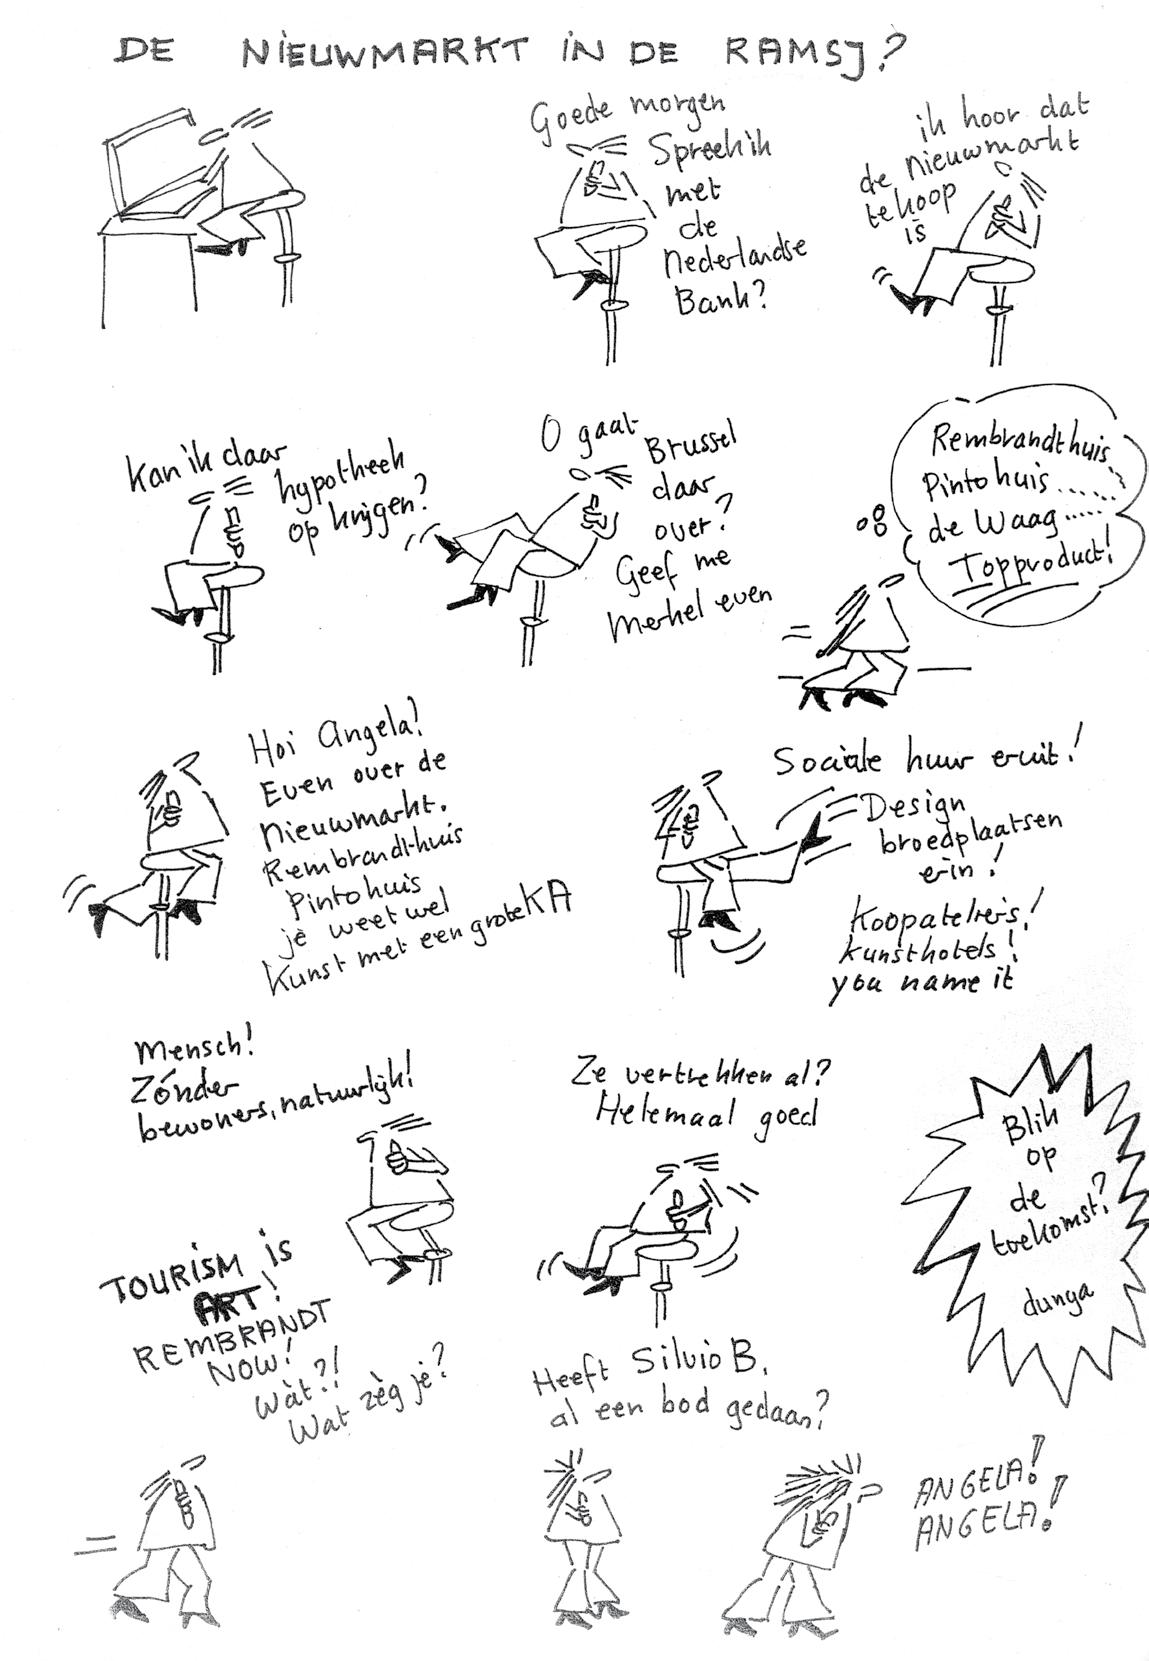 DE NIEUWMARKT IN DE RAMSJ?
Goede morgen
Spreek ik
met
de
nederlandse
Bank?
ik hoor dat
de nieuwmarkt
te koop
is
Kan ik daar
hypotheek
op krijgen?
O gaat
Brussel
daar
over?
Geef me
Merkel even
Rembrandthuis
Pintohuis......
de Waag.....
Topproduct!
Hoi Angela!
Even over de
nieuwmarkt.
Rembrandthuis
Pintohuis
je weet wel
Kunst met een grote KA
Sociale huur eruit!
Design
broedplaatsen
erin!
Koopateliers!
kunsthotels!
you name it
Mensch!
Zónder
bewoners, natuurlijk!
Ze vertrekken al?
Helemaal goed
Blik
op
de
toekomst?
dunya
TOURISM is
ART!
REMBRANDT
NOW!
Wàt?!
Wat zèg je?
Heeft Silvio B.
al een bod gedaan?
ANGELA!
ANGELA!